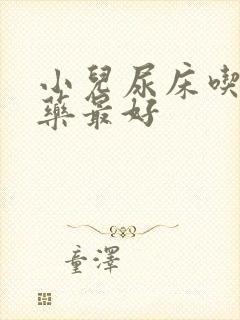 小兒尿床喫
藥最好
童澤